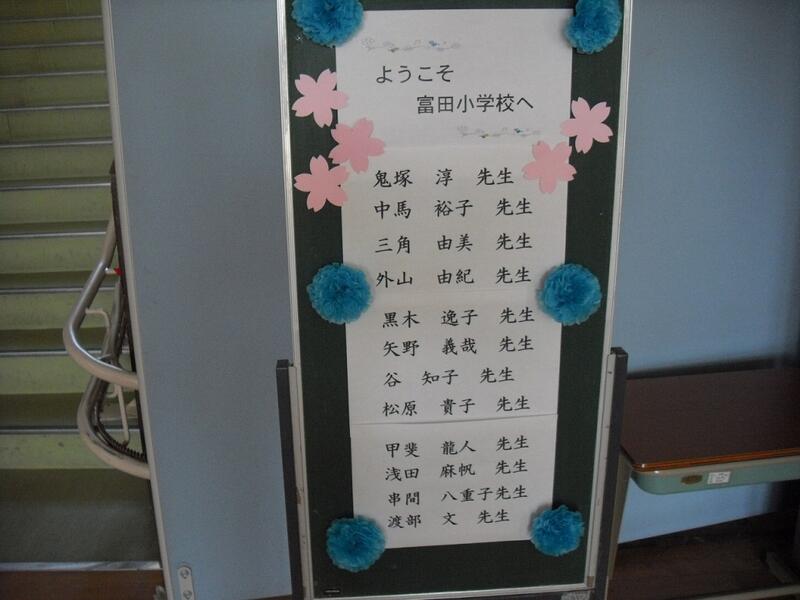 ようこそ
富田小学校へ
鬼塚 淳 先生
中馬 裕子 先生
三角 由美 先生
外山 由紀 先生
黒木 逸子 先生
矢野 義哉 先生
谷 知子 先生
松原 貴子 先生
甲斐 龍人 先生
浅田 麻帆 先生
串間 八重子先生
渡部 文 先生